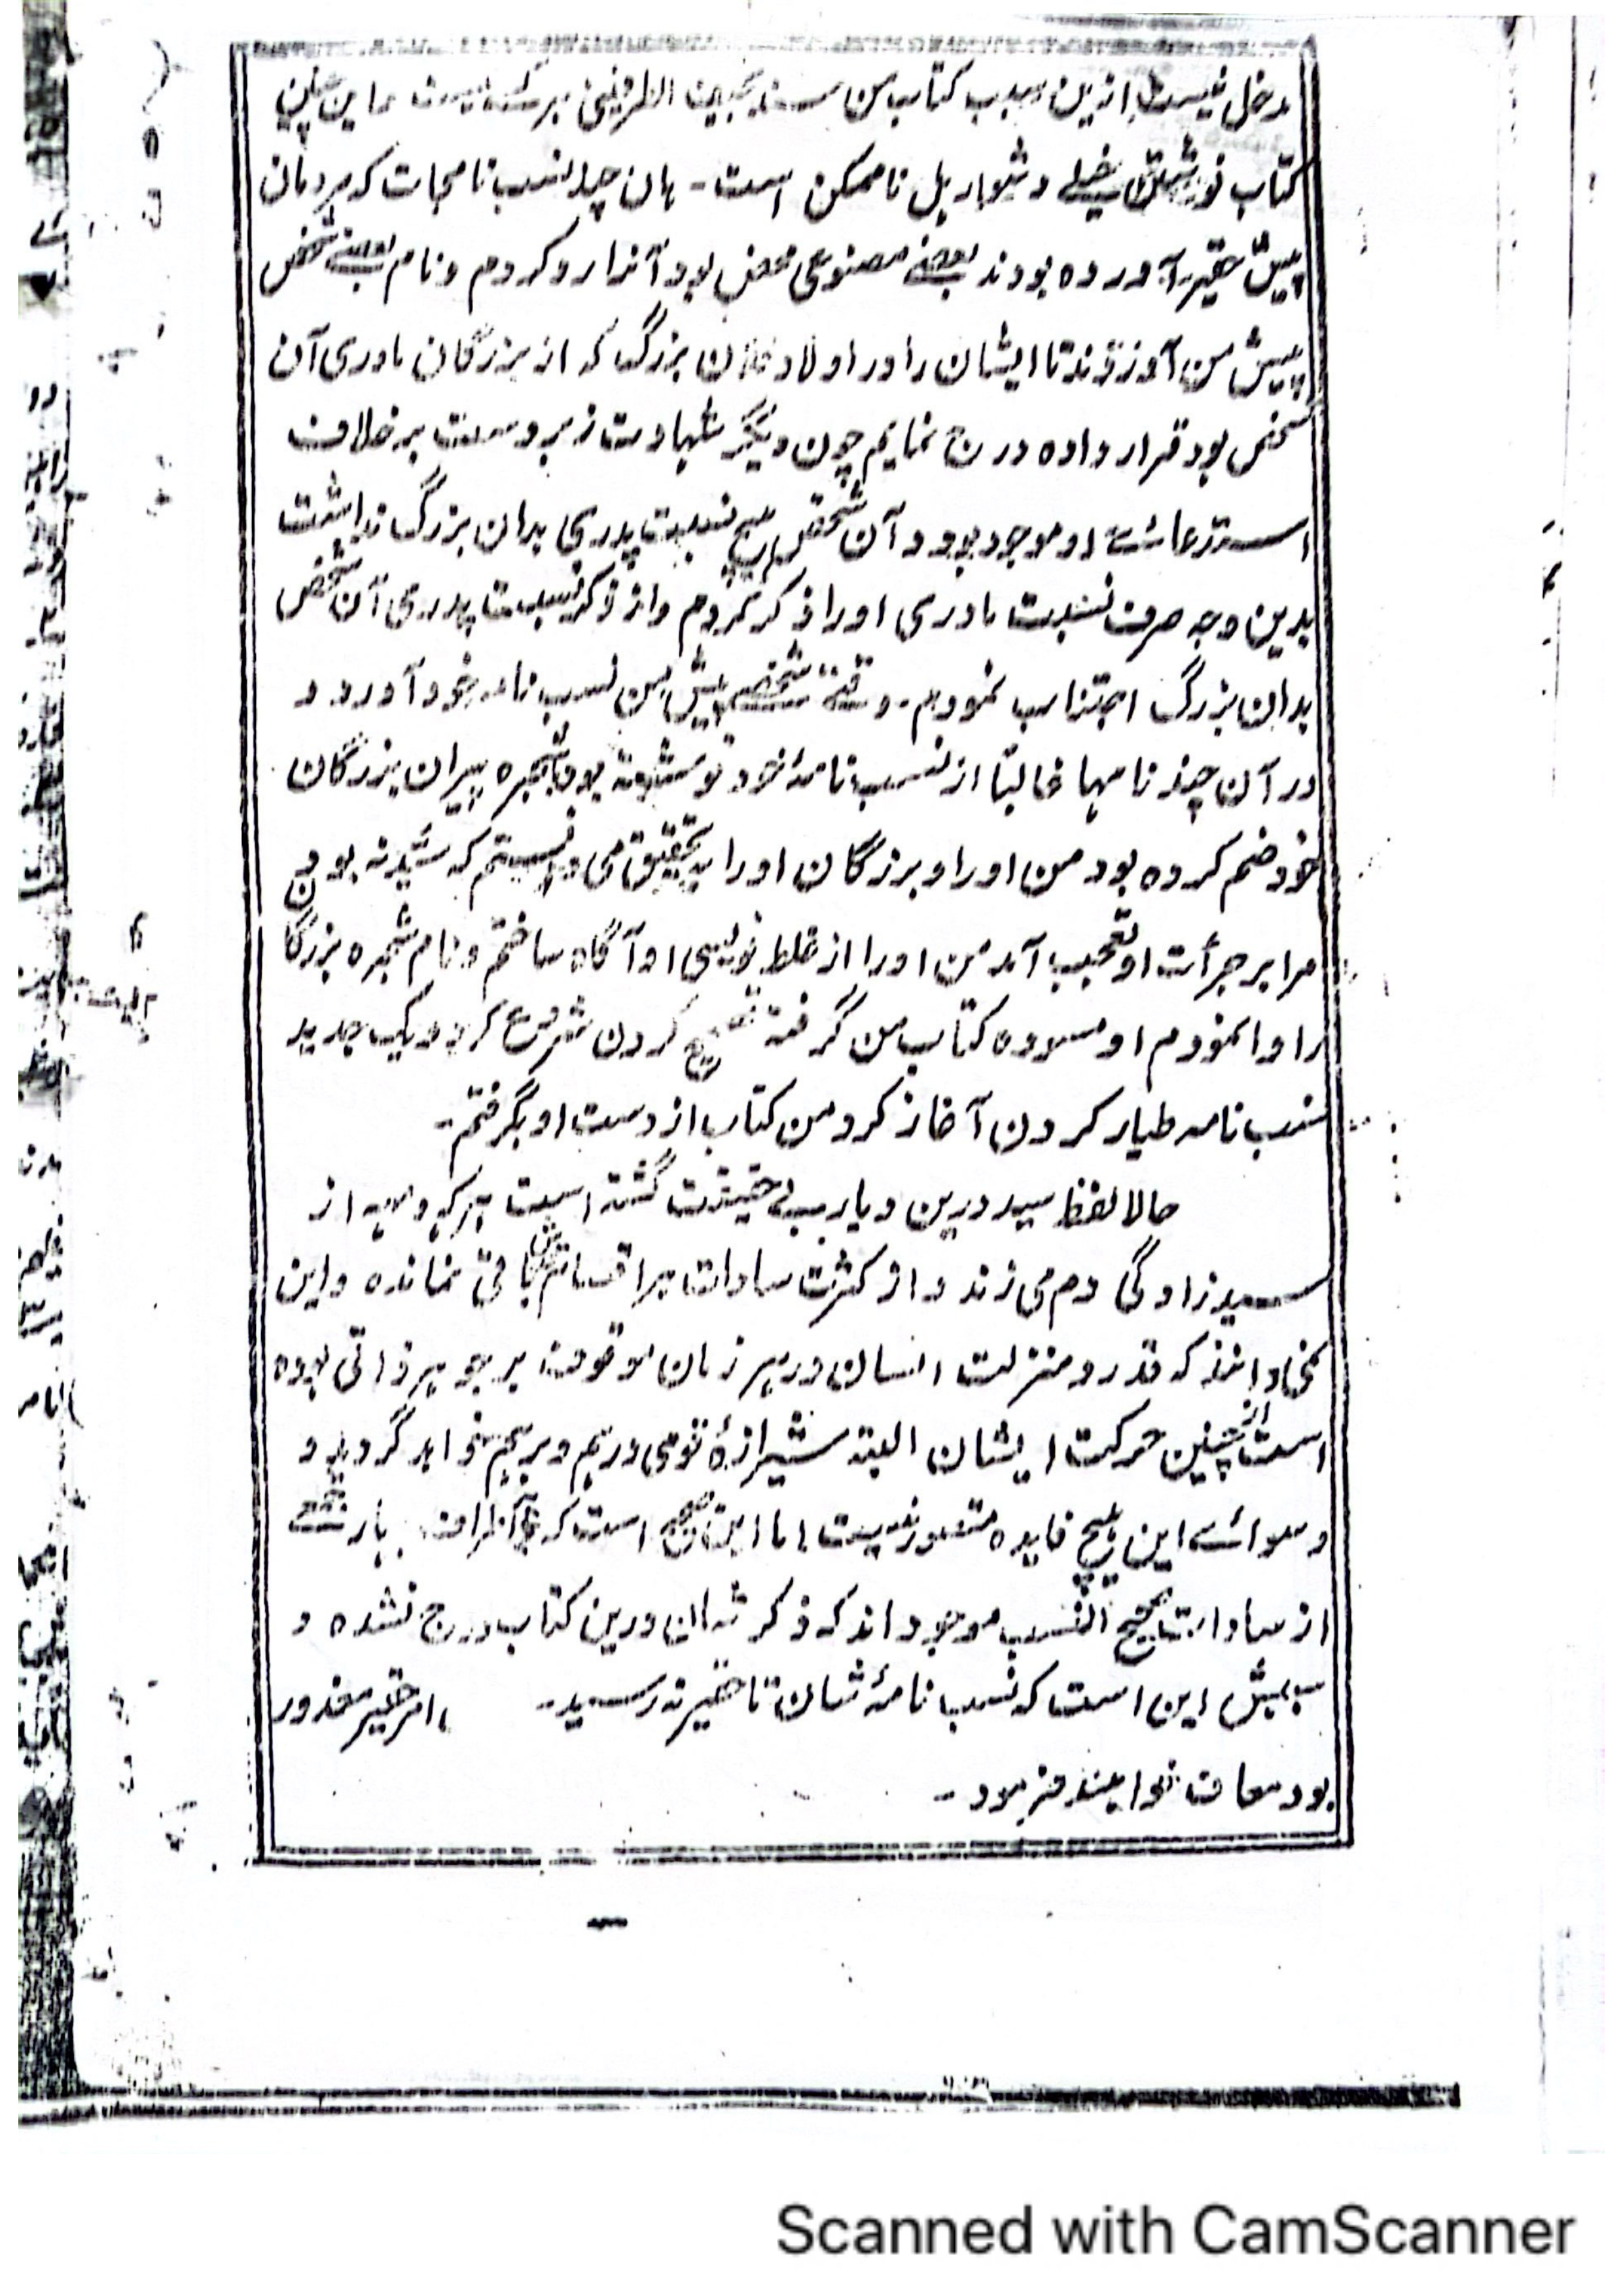 دخل نیست ازین سبب کتاب من سند نجیب الطرفینی هر کسی نیست و این چنین
کتاب نوشتن خیلے دشوار بل ناممکن است - ہان چند نسب نامجات کہ مردمان
پیش حقیر آوردہ بودند بعضے مصنوعی محض بود آنرا رد کردم و نام بعضے شخص
پیش من آوردند تا ایشان را در اولاد فلان بزرگ کہ از بزرگان مادری آن
شخص بود قرار دادہ درج نمایم چون دیگر شہادت زبردست بر خلاف
استدعائے او موجود بود و آن شخص ہیچ نسبت پدری بدان بزرگ نداشت
بدین وجہ صرف نسبت مادری او را ذکر کردم و از ذکر نسبت پدری آن شخص
بدان بزرگ اجتناب نمودم - وقتے شخصے پیش من نسب نامہ خود آورد و
در آن چند نامہا غالباً از نسب نامۂ خود نوشتہ بود شجرہ پیران بزرگان
خود ضم کردہ بود من او را و بزرگان او را بتحقیق می دانستم کہ سید نہ بودن
مرا بر جرأت او تعجب آمد من او را از غلط نویسی او آگاہ ساختم و نام شجرہ بزرگا
را وا نمودم او مسودہ کتاب من گرفتہ تصحیح کردن شروع کرد و یک جدید
نسب نامہ طیار کردن آغاز کرد من کتاب از دست او بگرفتم -
حالا لفظ سید درین دیار بے حقیقت گشتہ است ہر کہ و مہ از
سید زادگی دم می زند و از کثرت سادات براقسامش باقی نماندہ و این
نمی دانند کہ قدر و منزلت انسان در ہر زمان موقوف بر جوہر ذاتی بودہ
است از چنین حرکت ایشان البتہ شیرازۂ قومی درہم و برہم خواہد گردید و
و سوائے این ہیچ فایدہ متصور نیست اما این صحیح است کہ اطراف
از سادات صحیح النسب موجود اند کہ ذکر شان درین کتاب درج نشدہ و
سببش این است کہ نسب نامۂ شان تا حقیر نہ رسید - امر حقیر معذور
بود معاف خواہند فرمود -
Scanned with CamScanner